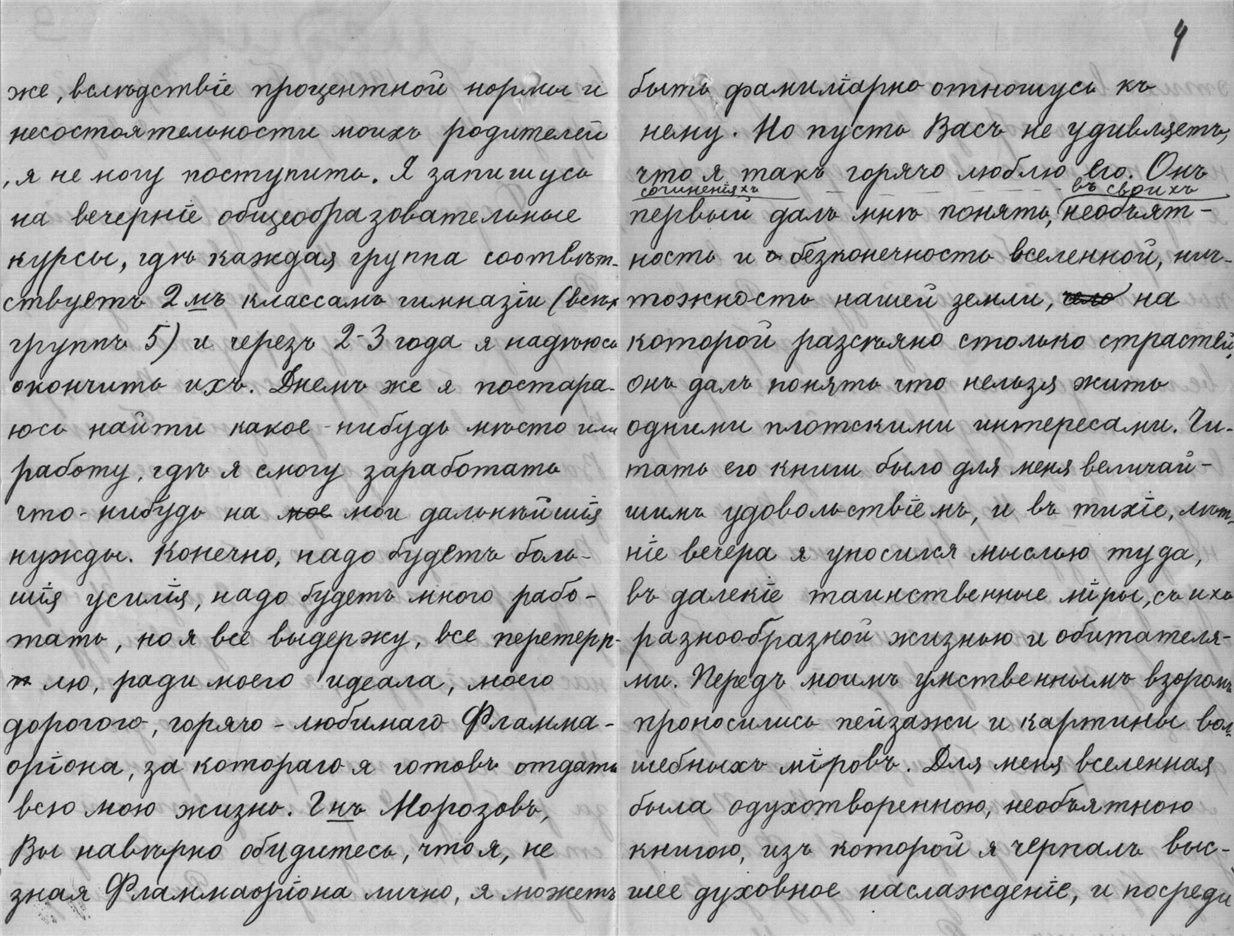 же, вслѣдствіе процентной нормы и
несостоятельности моихъ родителей
, я не могу поступить. Я запишусь
на вечерніе общеобразовательные
курсы, гдѣ каждая группа соотвѣт-
ствуетъ 2мъ классамъ гимназіи (всѣхъ
группъ 5) и черезъ 2-3 года я надѣюсь
окончить ихъ. Днемъ же я постара-
юсь найти какое-нибудь мѣсто или
работу, гдѣ я смогу заработать
что-нибудь на мое мои дальнѣйшія
нужды. Конечно, надо будетъ боль-
шія усилія, надо будетъ много рабо-
тать, но я все выдержу, все перетерп-
п лю, ради моего идеала, моего
дорогого, горячо-любимаго Фламма-
оріона, за котораго я готовъ отдать
всю мою жизнь. Гнъ Морозовъ,
Вы навѣрно обидитесь, что я, не
зная Фламмаоріона лично, я можетъ
4
быть фамиліарно отношусь къ
нему. Но пусть Васъ не удивляетъ,
что я такъ горячо люблю его. Онъ
сочиненіяхъ въ своихъ
первый далъ мнѣ понять, необъят-
ность и безконечность вселенной, нич-
тожность нашей земли, на
которой разсѣяно столько страстей,
онъ далъ понять что нельзя жить
одними плотскими интересами. Чи-
тать его книги было для меня величай-
шимъ удовольствіемъ, и въ тихіе, лѣт-
ніе вечера я уносился мыслью туда,
въ далекіе таинственные міры, съ ихъ
разнообразной жизнью и обитателя-
ми. Передъ моимъ умственнымъ взоромъ
проносились пейзажи и картины вол-
шебныхъ міровъ. Для меня вселенная
была одухотворенною, необъятною
книгою, изъ которой я черпалъ выс-
шее духовное наслажденіе, и посреди